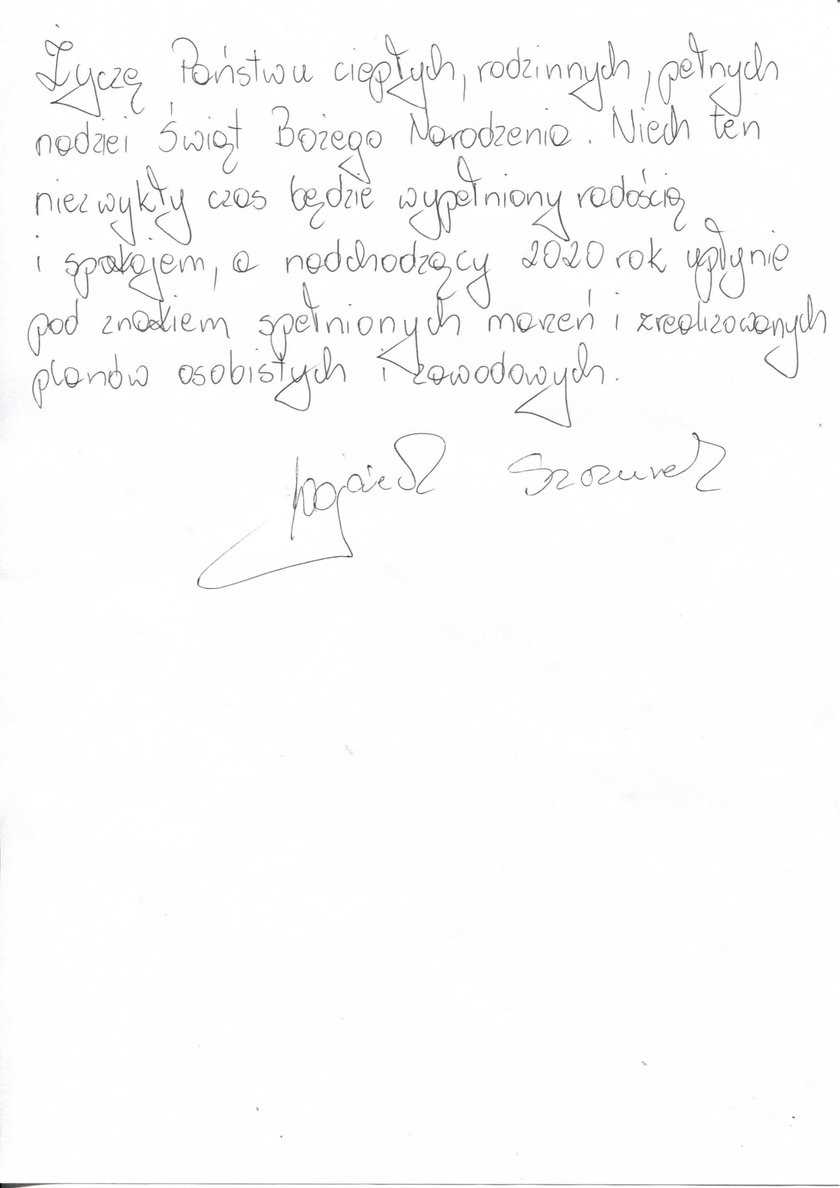 Życzę Państwu ciepłych, rodzinnych, pełnych
nadziei Świąt Bożego Narodzenia. Niech ten
niezwykły czas będzie wypełniony radością
i spokojem, a nadchodzący 2020 rok upłynie
pod znakiem spełnionych marzeń i zrealizowanych
planów osobistych i zawodowych.
Wojciech Szczurek